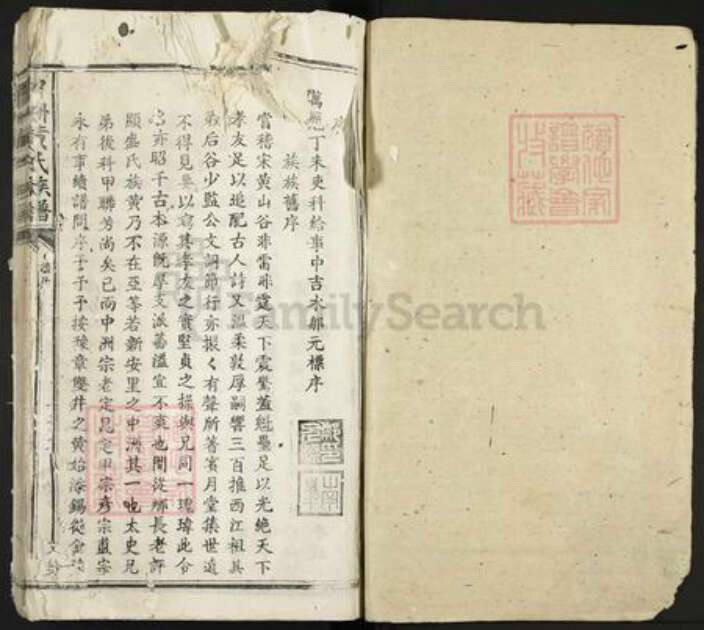 序
萬曆丁未吏科給事中吉水鄒元標序
族族舊序
嘗稽宋黃山谷非雷非霆天下震驚蓋魁壘足以光絶天下
孝友足以追配古人詩又溫柔敦厚嗣響三百推西江祖其
弟后谷少監公文詞節行亦振々有聲所著賓月堂集世遠
不得見無以窺其孝友之實堅貞之操與兄同一瓌瑋此令
名亦昭千古本源旣厚支派蕃溢宜不爽也間從鄉長老評
顯盛氏族黃乃不在亞等若新安里之中洲其一也太史兄
弟後科甲聯芳尚矣已而中洲宗老定昆定甲宗彥宗盡宗
永有事續譜問序于予予按豫章雙井之黃始
黃氏族譜
FamilySearch